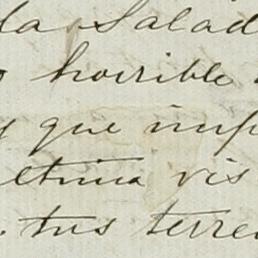 la Salad
horrible
y que imp
ltima vis
tus terre